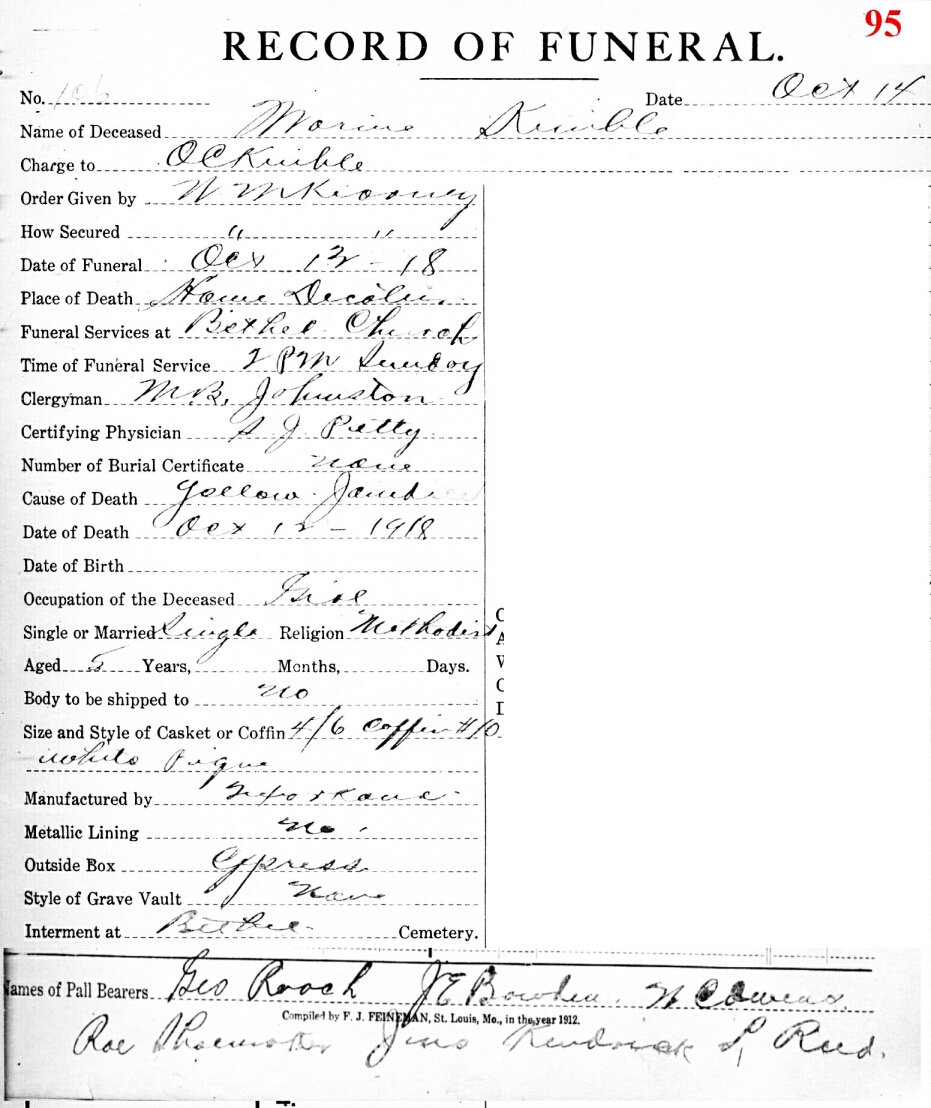 95
RECORD OF FUNERAL.
No. 106 Date Oct 14
Name of Deceased Kimble
Charge to O C Kimble
Order Given by W
How Secured " "
Date of Funeral Oct 12 - 18
Place of Death Home
Funeral Services at Bethel Church
Time of Funeral Service 2 PM Sunday
Clergyman M.B. Johnston
Certifying Physician J Petty
Number of Burial Certificate None
Cause of Death Yellow Jaundice
Date of Death Oct 12 - 1918
Date of Birth
Occupation of the Deceased
Single or Married Single Religion Methodist
Aged 5 Years, Months, Days.
Body to be shipped to No
Size and Style of Casket or Coffin 4/6 Coffin #10
White
Manufactured by
Metallic Lining No
Outside Box Cypress
Style of Grave Vault None
Interment at Bethel Cemetery.
Names of Pall Bearers Geo Roach J E Bowden. W C Owens.
Compiled by F. J. FEINEMAN, St. Louis, Mo., in the year 1912.
Roe Shoemaker Jno Kendrick S, Reed.